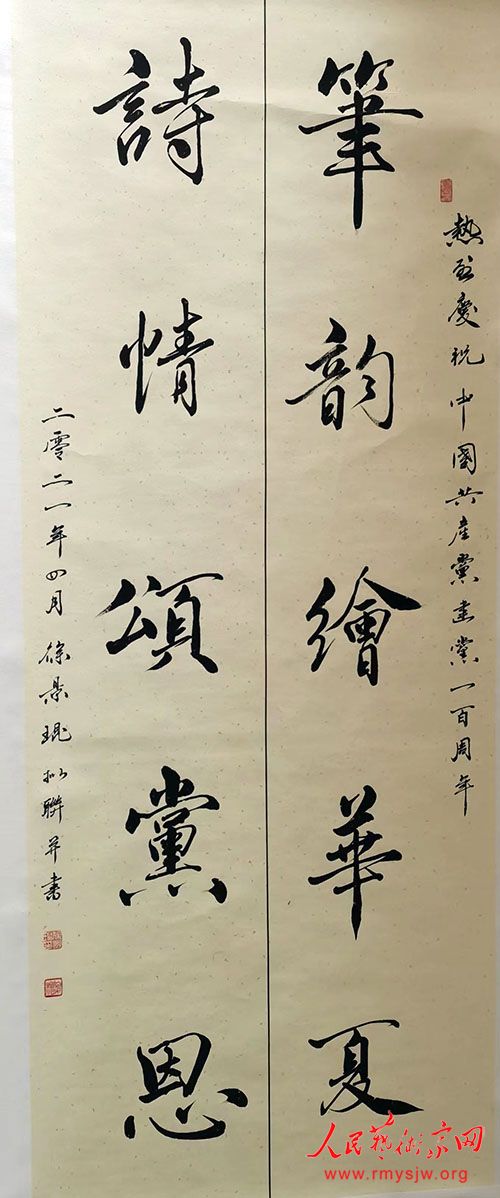 熱烈慶祝中國共產黨建黨一百周年
筆韵繪華夏
詩情頌黨恩
二零二一年四月徐景琨拟聯并書
人民艺术家网
www.rmysjw.org